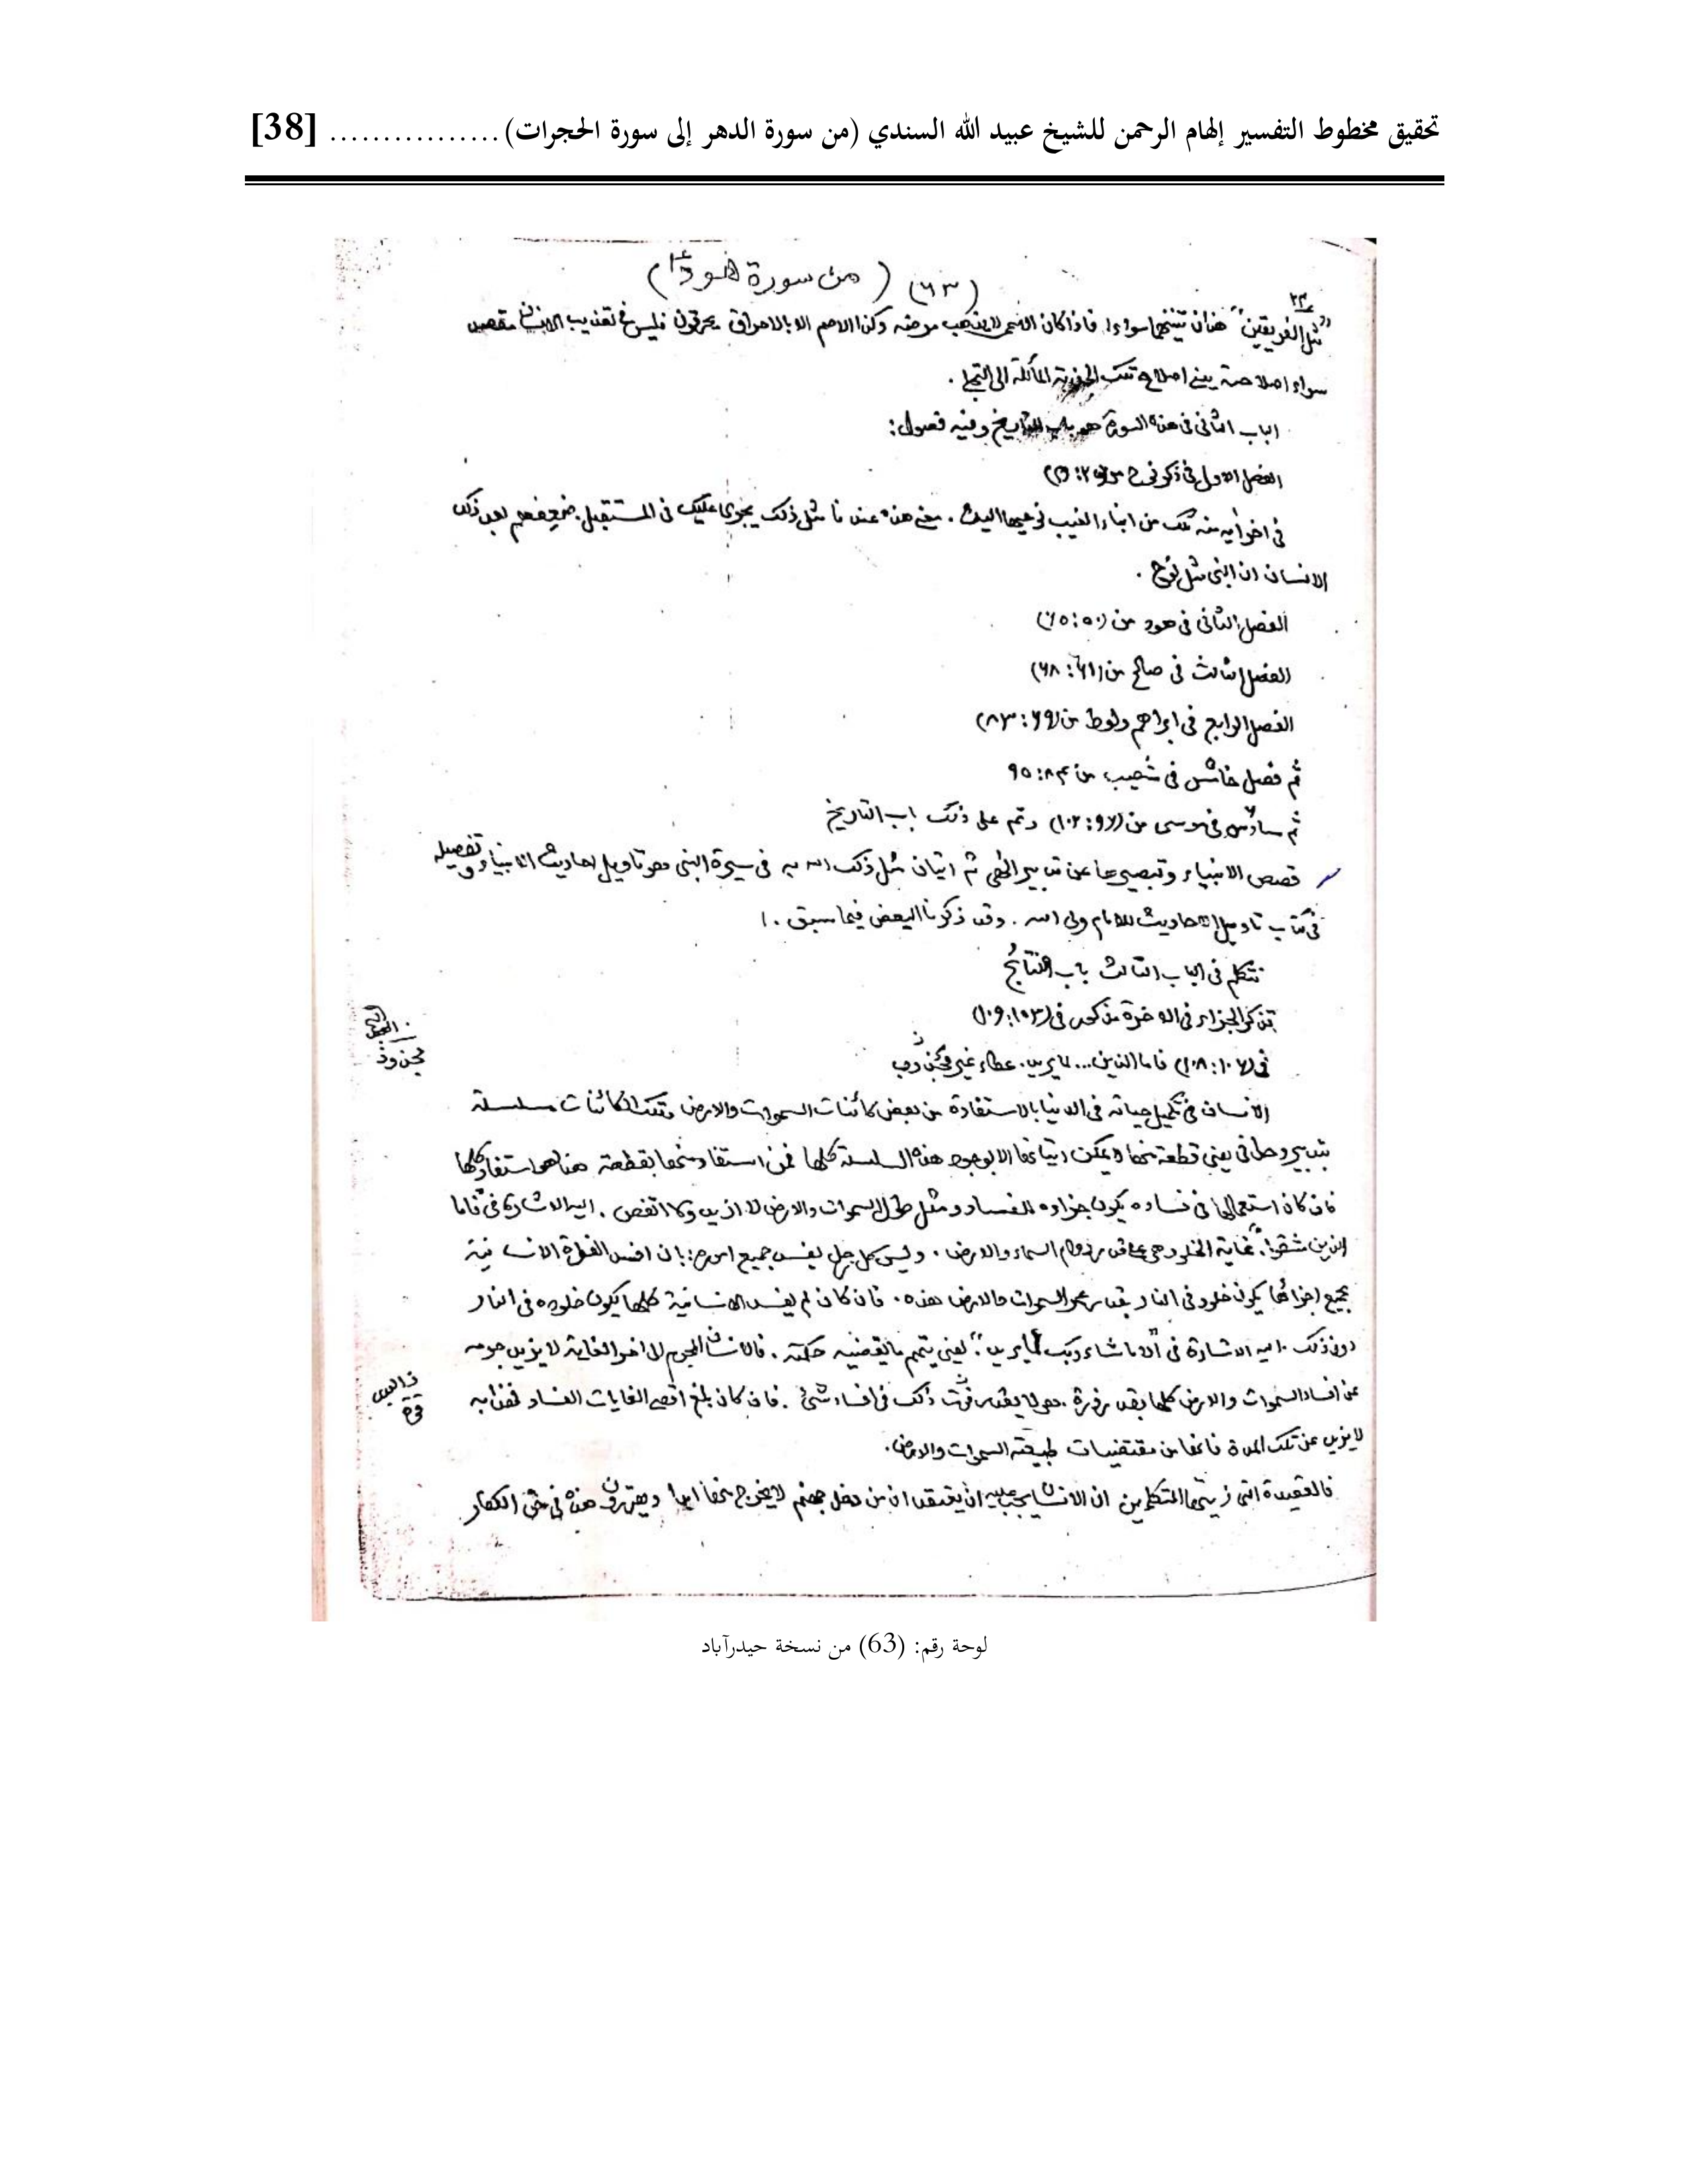 تحقيق مخطوط التفسير إلهام الرحمن للشيخ عبيد الله السندي (من سورة الدهر إلى سورة الحجرات) ................ [38]
(٦٣) (من سورة هود)
٢٤
"مثل الفريقين" هذان سواء فاذا كان الاعمى لا يذهب مرضه وكذا الاصم الا بالاحراق يحرقون فليس في تعذيب الانسان مقصد
سواء اصلاحه يعني اصلاح تلك المائلة الى
الباب الثانى فى هذه السورة هو باب التاريخ وفيه فصول:
الفصل الاول فى ذكر نوح من
فى اخر آية منه تلك من انباء الغيب نوحيها اليك. معنى هذه عندنا مثل ذلك يجرى عليك فى المستقبل. بعد ذلك
الانسان ان النبى مثل نوح.
الفصل الثانى فى هود من (٥٠:٦٠)
الفصل الثالث فى صالح من (٦١:٦٨)
الفصل الرابع فى ابراهيم ولوط من (٦٩:٨٣)
ثم فصل خامس فى شعيب من ٨٤:٩٥
ثم سادس فى موسى من (٩٦:١٠٢) وتم على ذلك باب التاريخ
قصص الانبياء وتبصيرها عن تدابير الحق ثم اتيان مثل ذلك فى سيرة النبى هو تاويل احاديث الانبياء وتفصيله
فى كتاب تاويل الاحاديث للامام ولى الله. وقد ذكرنا البعض فيما سبق.
نتكلم فى الباب الثالث باب النتائج
تذكر الجزاء فى الاخرة مذكور فى (١٠٣:١٠٩)
فى (١٠٦:١٠٨) فاما الذين... لما يريد. عطاء غير مجذوذ
مجذوذ
الانسان فى تكميل حياته فى الدنيا بالاستفادة من بعض كائنات السموات والارض وتلك الكائنات سلسلة
بتدبير وحدانى يعنى قطعة منها لا يمكن اتيانها الا بوجود هذه السلسلة كلها فمن استفاد منها بقطعة هذا هو استفاد كلها
فان كان استعمالها فى فساده يكون جزاءه للفساد ومثل طول السموات والارض لا ازيد ولا انقص. اليه الاشارة فى فاما
الذين شقوا. غاية الخلود هى دوام السماء والارض. وليس كل رجل يفسد جميع بان افسد الفطرة الانسانية
بجميع اجزائها يكون خلود فى النار بقدر عمر السموات والارض هذه. فان كان لم يفسد الانسانية كلها يكون خلوده فى النار
دون ذلك. اليه الاشارة فى الا ما شاء ربك لما يريد: يعنى يتمم ما يقتضيه حكمته. فالانسان المجرم الى اخر الغاية لا يزيد جرمه
عن افساد السموات والارض كلها بقدر وهو لا يقدر فوق ذلك فى افساد شئ. فان كان بلغ اقصى الغايات الفساد فعذابه
لا يزيد عن تلك المدة فانها من مقتضيات طبيعة السموات والارض.
فالعقيدة التى المتكلمين ان الانسان يجب عليه ان يعتقد ان من دخل جهنم لا يخرج منها ابدا هذه فى حق الكفار
لوحة رقم: (63) من نسخة حيدرآباد